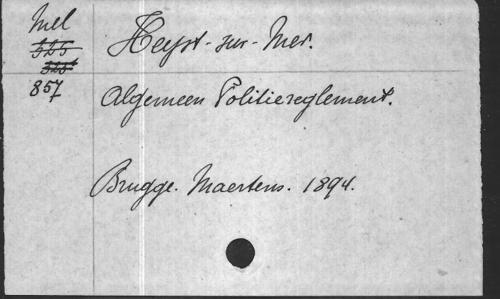 Mel
Heyst-sur-Mer.
857
Algemeen Politiereglement.
Brugge. Maertens. 1894.